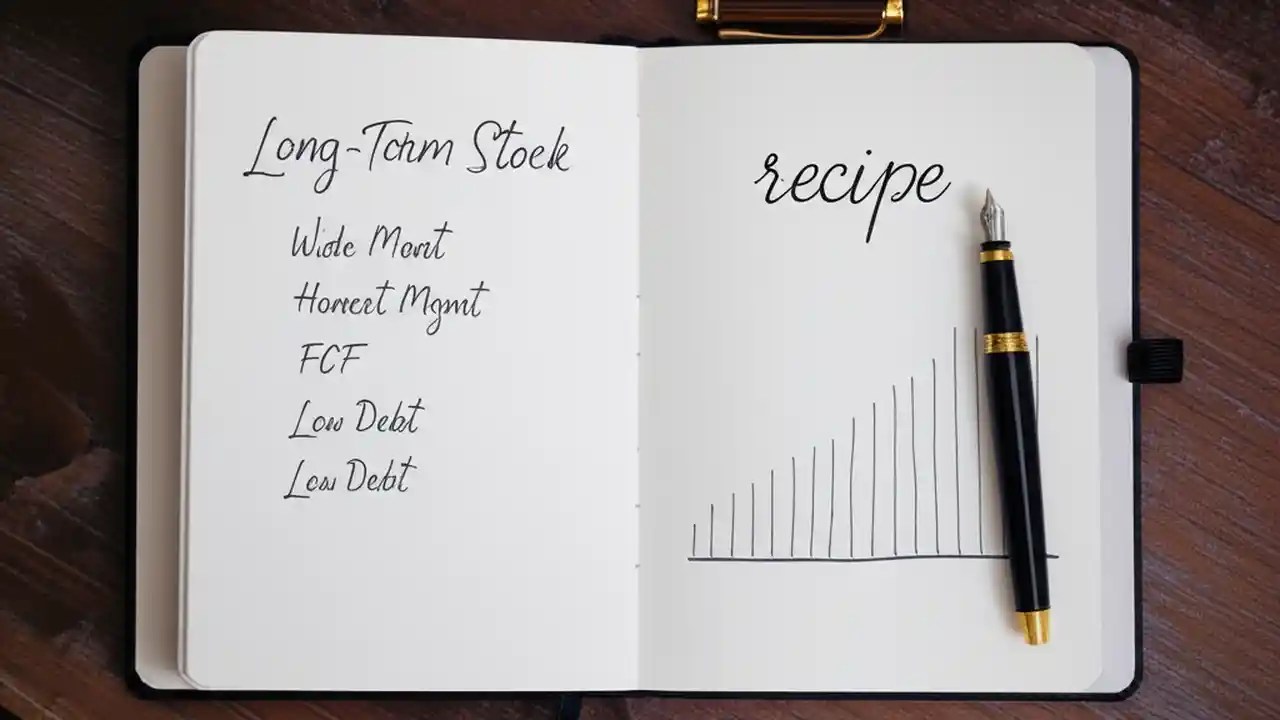 Long-Term Stock
Wide Moat
Honest Mgmt
FCF
Low Debt
Low Debt
recipe